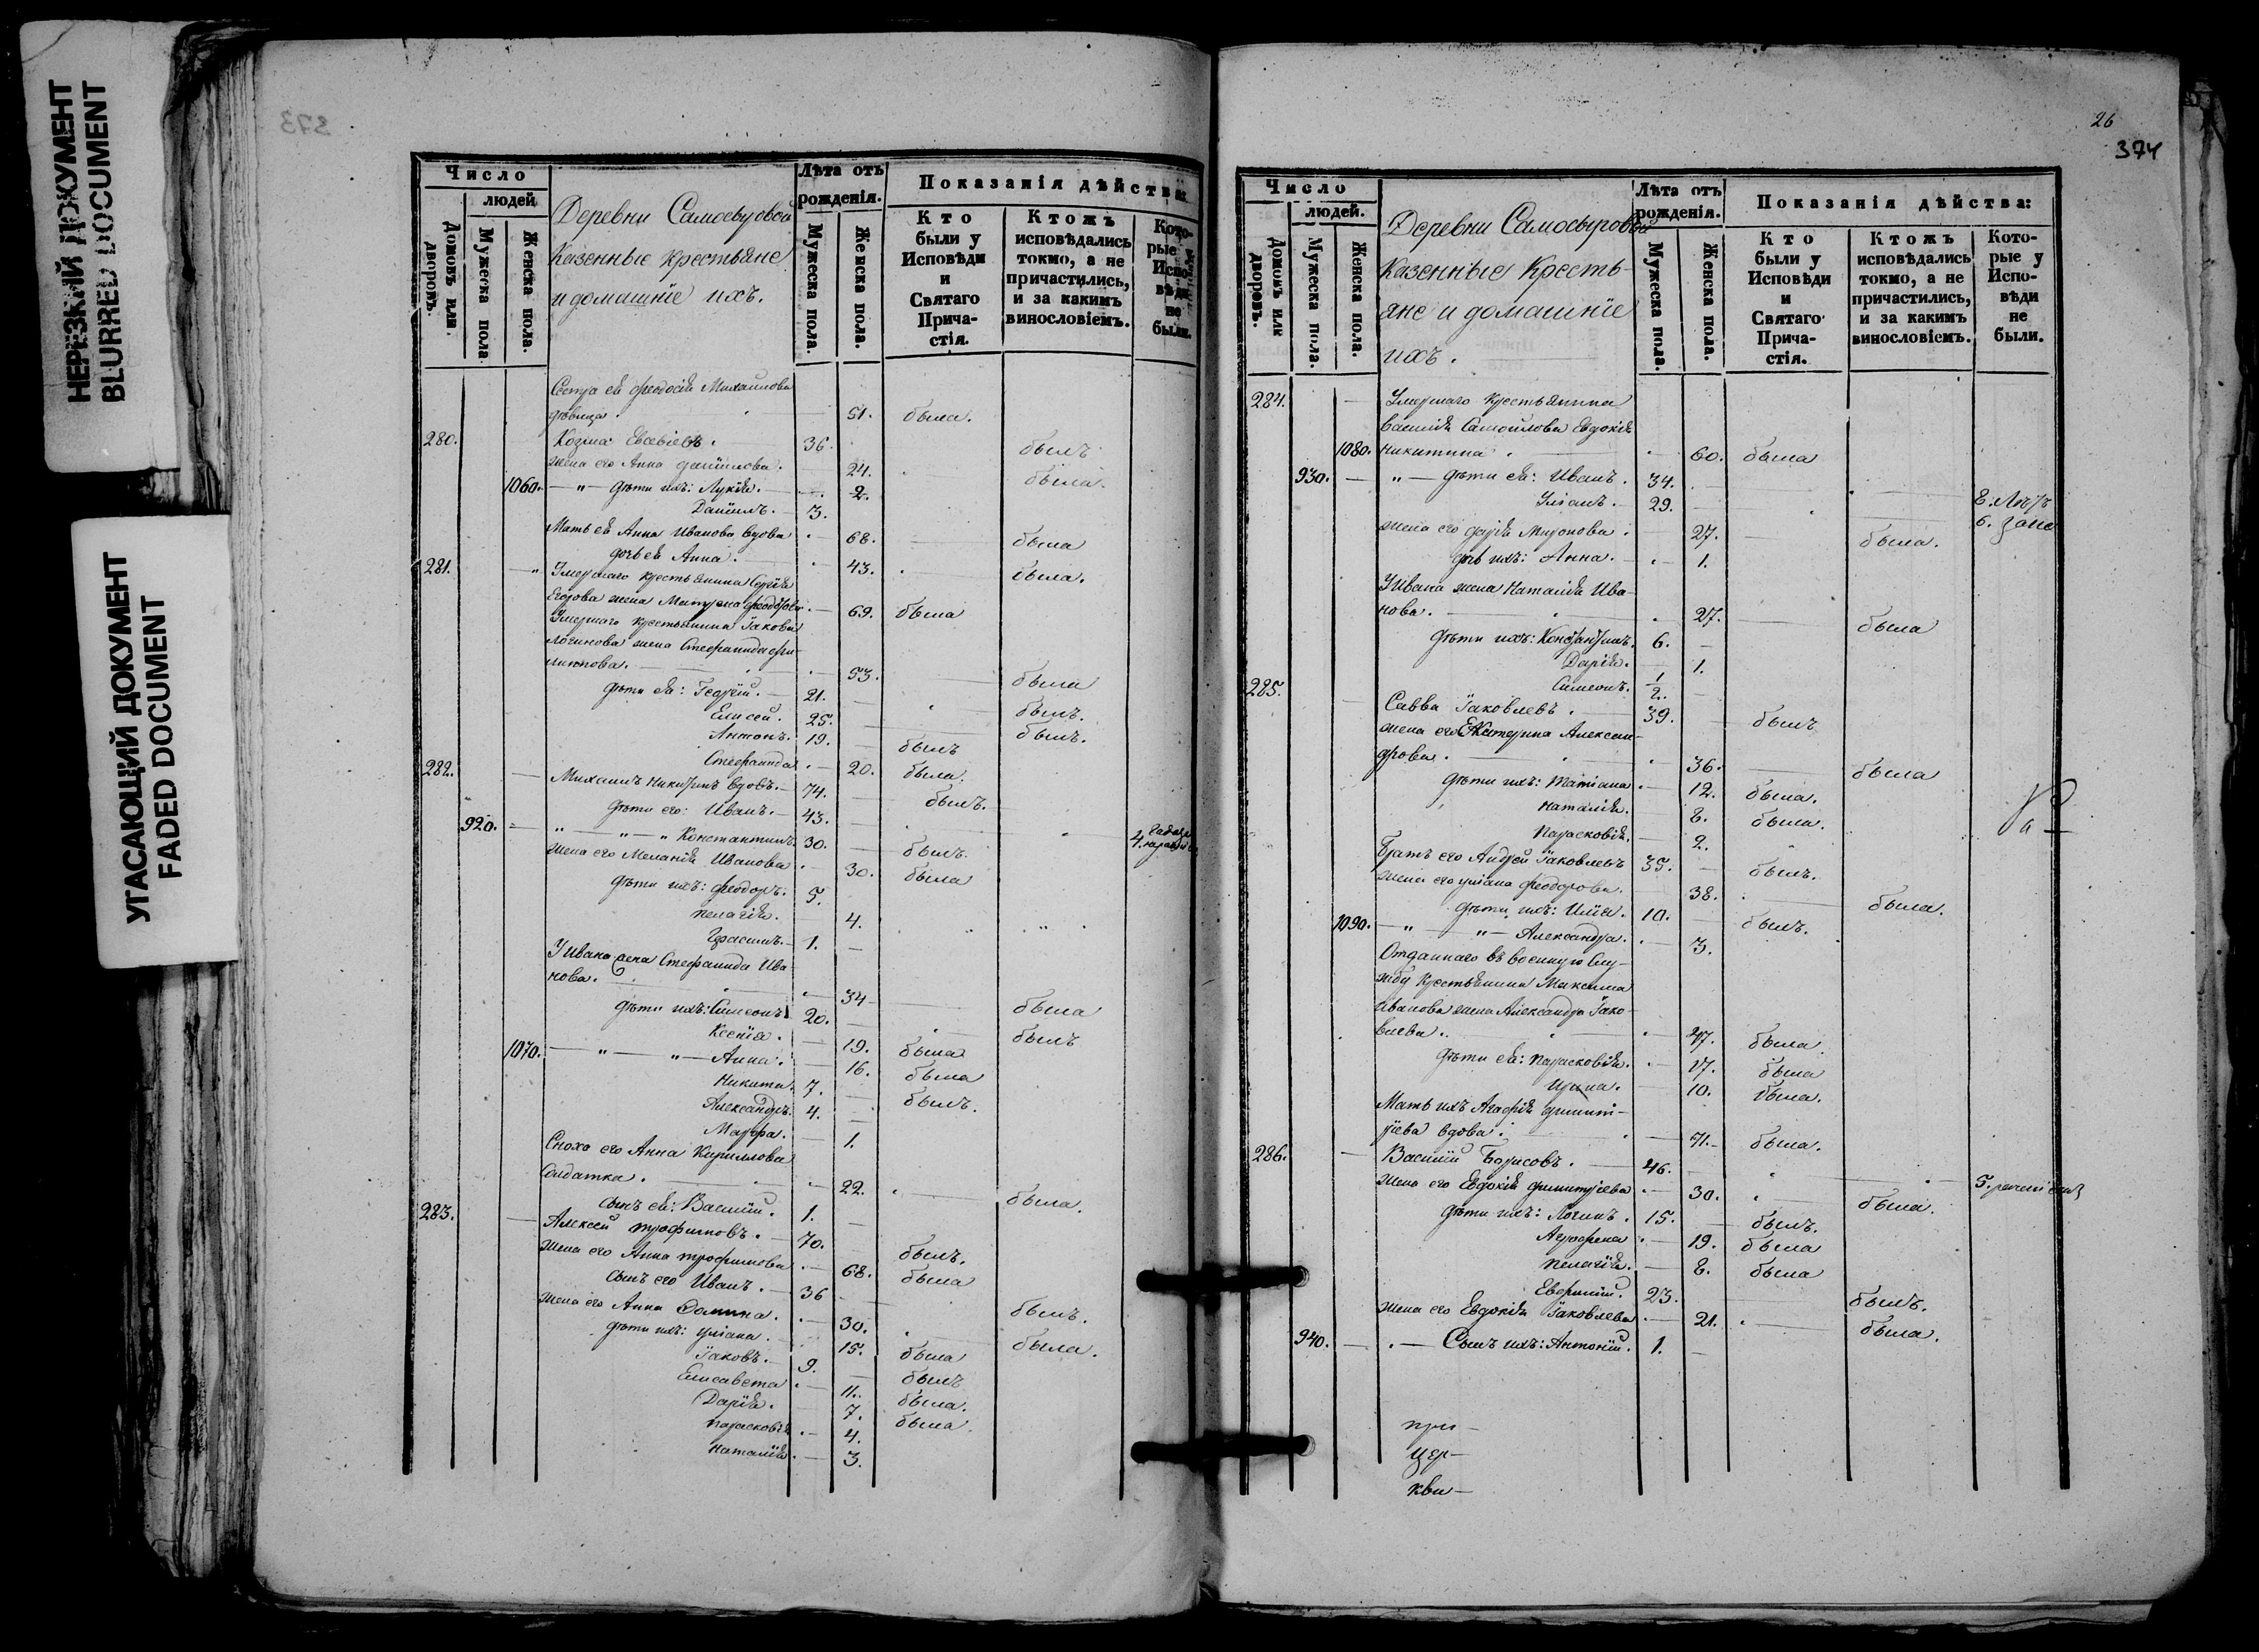 НЕРЕЗКИЙ ДОКУМЕНТ
BLURRED DOCUMENT
УГАСАЮЩИЙ ДОКУМЕНТ
FADED DOCUMENT
373
Число
людей
Домовъ или дворовъ.
Мужеска пола
Женска пола.
Деревни
Казенные крестьяне
и домашніе ихъ.
Лѣта отъ рожденія.
Мужеска пола.
Женска пола.
Показанія дѣйства:
Кто были у Исповѣди и Святаго Причастія.
Ктожъ исповѣдались токмо, а не причастились, и за какимъ винословіемъ.
Которые Исповѣди не были.
Сестра ея Феодосія Михаилова
дѣвица. 51. была.
280. Козма Евсевіевъ. 36. былъ
жена его Анна Даніилова. 24. была.
1060. " дѣти ихъ: Лукія. 2.
Даніилъ. 3.
Мать ея Анна Иванова вдова 68. была
дочь ея Анна. 43. была.
281. " Умершаго крестьянина Сергія
Егорова жена Матрона Феодорова 69. была
Умершаго крестьянина Іакова
Логинова жена Стефанида Фи-
липпова. 53. была
дѣти ея: Георгій. 21. былъ.
Елисей. 25. былъ.
Антонъ. 19. былъ
Стефанида 20. была.
282. Михаилъ Никитинъ вдовъ. 74. былъ.
дѣти его: Иванъ. 43. 4.
920. " " " Константинъ 30. былъ.
жена его Меланія Иванова 30. была
дѣти ихъ: Феодоръ. 5.
Пелагія. 4.
Герасимъ. 1.
У Ивана жена Стефанида Ива-
нова. 34 была
дѣти ихъ: Симеонъ 20. былъ
Ксенія. 19. была
1070. " " Анна. 16. была
Никита. 7. былъ.
Александръ. 4.
Марфа. 1.
Сноха его Анна Кириллова
Солдатка. 22. была.
сынъ ея: Василій. 1.
283. Алексей Трофимовъ. 70. былъ.
жена его Анна Трофимова 68. была
сынъ его Иванъ. 36 былъ.
жена его Анна 30. была.
дѣти ихъ: Уліана. 15. была
Іаковъ. 9. былъ
Елисавета 11. была.
Дарія. 7. была
Парасковія 4.
Наталія 3.
26
374
Число
людей.
Домовъ или дворовъ.
Мужеска пола.
Женска пола.
Деревни Самосыровой
Казенные Кресть-
яне и домашніе
ихъ.
Лѣта отъ рожденія.
Мужеска пола.
Женска пола.
Показанія дѣйства:
Кто были у Исповѣди и Святаго Причастія.
Ктожъ исповѣдались токмо, а не причастились, и за какимъ винословіемъ.
Которые у Исповѣди не были.
284. Умершаго крестьянина
Василія Самойлова Евдокія
1080. Никитина 60. была
930. " дѣти ея: Иванъ. 34.
Уліанъ. 29.
жена его Дарія Миронова. 27. была.
дочь ихъ: Анна. 1.
У Ивана жена Наталія Ива-
нова. 27. была
дѣти ихъ: Константинъ. 6.
Дарія. 1.
Симеонъ. 1/2.
285. Савва Іаковлевъ. 39. былъ
жена его Екатерина Алексан-
дрова. 36. была
дѣти ихъ: Татіана 12. была.
Наталія. 8. была.
Парасковія. 2.
Братъ его Андрей Іаковлевъ 35. былъ.
жена его Уліана Феодорова. 38. была.
дѣти ихъ: Илія. 10. былъ.
1090. " " Александра. 3.
Отданнаго въ военную Слу-
жбу Крестьянина Максима
Иванова жена Александра Іако-
влева. 47. была
дѣти ея: Парасковія. 17. была
Ирина. 10. была.
Мать ихъ Агафія Димит-
ріева вдова. 71. была.
286. Василій Борисовъ. 46. 5.
жена его Евдокія Димитріева 30. была.
дѣти ихъ: Логинъ. 15. былъ.
Агрофена 19. была
Пелагія. 8. была
Евфимій. 23. былъ.
жена его Евдокія Іаковлева 21. была.
940. Сынъ ихъ: Антоній. 1.
при-
цер-
кви-